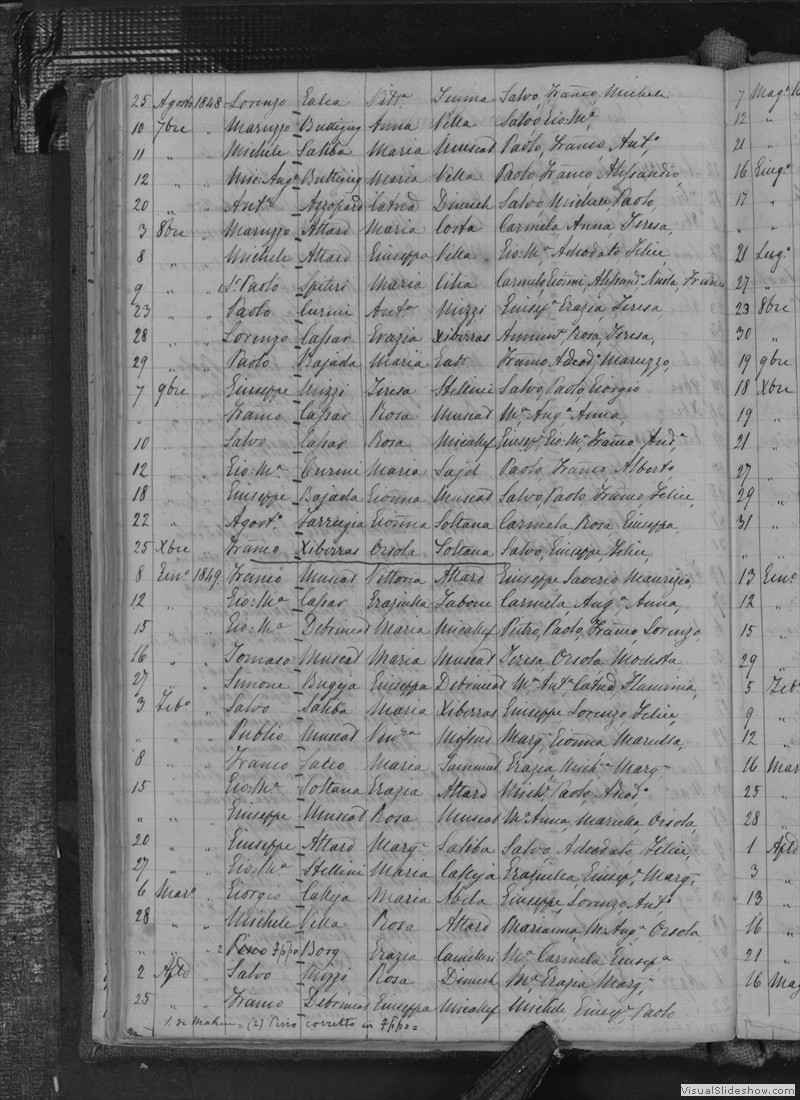 25 Agosto 1848 Lorenzo Galea Petra Gemma Salvo, Franco, Michele
10 7bre " Maruzzo Buttigieg Anna Vella Salvo Gio: Ma
11 " " Michele Saliba Maria Muscat Paolo, Franco, Anto
12 " " Mic: Ango Buttigieg Maria Vella Paolo Franco Alessandro,
20 " " Anto Azzopard Catna Dimech Salvo Michele Paolo,
3 8bre " Maruzzo Attard Maria Costa Carmela Anna Teresa,
8 " " Michele Attard Giuseppa Vella Gio: Ma Adeodato Felice,
9 " " 1 Paolo Spiteri Maria Cilia Carmelo Gionni, Alessand. Nicola, Franco
23 " Paolo Curmi Anta Mizzi Giusepa Grazia Teresa
28 " Lorenzo Cassar Grazia Xiberras Rosa, Teresa,
29 " Paolo Bajada Maria Franco Adeodo Maruzzo,
7 9bre " Giuseppe Mizzi Teresa Stellini Salvo Paolo Giorgio
" " Franco Cassar Rosa Muscat Ma Anga Anna,
10 " Salvo Cassar Rosa Micallef Giuseppe Gio: Ma Franco
12 " " Gio: Ma Curmi Maria Sajd Paolo, Franco, Alberto
18 " " Giuseppe Bajada Gionna Muscat Salvo, Paolo, Franco, Felice,
22 " " Agosto Farrugia Gionna Soltana Carmela Rosa Giuseppa,
25 Xbre " Franco Xiberras Orsola Soltana Salvo, Giuseppe, Felice,
8 Genn. 1849 Franco Muscat Vittoria Attard Giuseppe Saverio Maurizio,
12 " " Gio: Ma Cassar Graziulla Tabone Carmela, Anga Anna,
15 " " Gio: Ma Debrincat Maria Micallef Pietro, Paolo, Franco, Lorenzo,
16 " " Tomaso Muscat Maria Muscat Teresa Orsola Modesta
27 " " Simone Bugeja Giuseppa Debrincat Ma Anta Catna Flaminia,
3 Febo " Salvo Saliba Maria Xiberras Giuseppe Lorenzo Felice,
" " Publio Muscat Vena Mifsud Marga Gionna Mariella,
8 " Franco Maria Sammut Grazia, Marga
15 " Gio: Ma Soltana Grazia Attard Michele Paolo, Adeodo
" " Giuseppe Muscat Rosa Muscat Ma Anna, Mariella, Orsola,
20 " Giuseppe Attard Marga Saliba Salvo Adeodato, Felice,
27 " Gio: Ma Stellini Maria Calleja Graziulla Giusepa Marga,
6 Maro " Giorgio Calleja Maria Abela Giuseppe, Lorenzo Anto
28 " Michele Vella Rosa Attard Marianna, M. Anga Orsola
" " 2 Piero Fppo Borg Grazia Camilleri Ma Carmela Giusepa
2 Apl " Salvo Mizzi Rosa Dimech Ma Grazia Marga,
25 " Franco Debrincat Giuseppa Micallef Michele Giuseppe, Paolo
(2) corretto in Fppo =
7 Mago
12 "
21 "
16 Giugo
17 "
" "
21 Lugo
27 "
23 8bre
30 "
19 9bre
18 Xbre
19 "
21 "
27 "
29 "
31 "
" "
13 Geno
12 "
15 "
29 "
5 Febo
9 "
12 "
16 Mar
25 "
28 "
1 Apl
3 "
13 "
16 "
21 "
16 Mag
VisualSlideshow.com